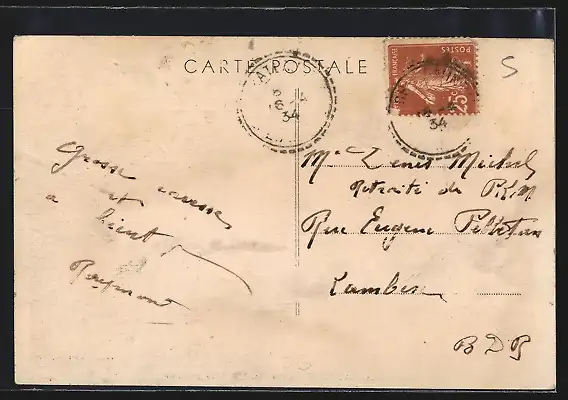 CARTE POSTALE
FRANÇAISE
POSTES
25c
34
34
5
Grosse caresses
et
a bientt
Raymond
Mr Denis Michel
Retraité du P.L.M
Rue Eugene Pelletan
Lambesc
BDR